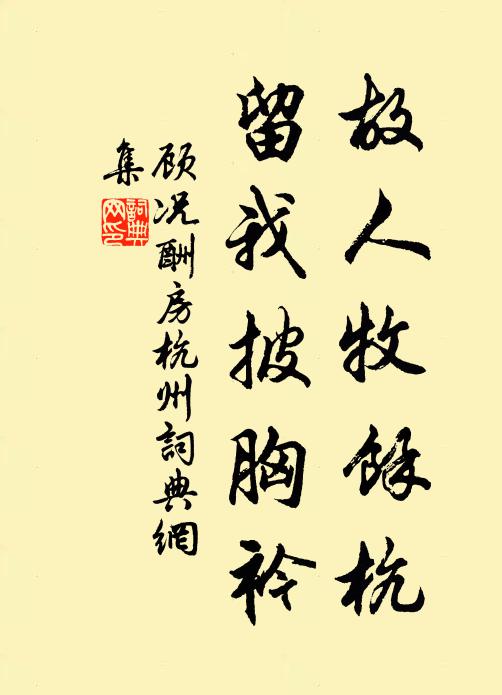 故人牧餘杭
留我披胸衿
顾况酬房杭州詞典網
集
詞典
网印